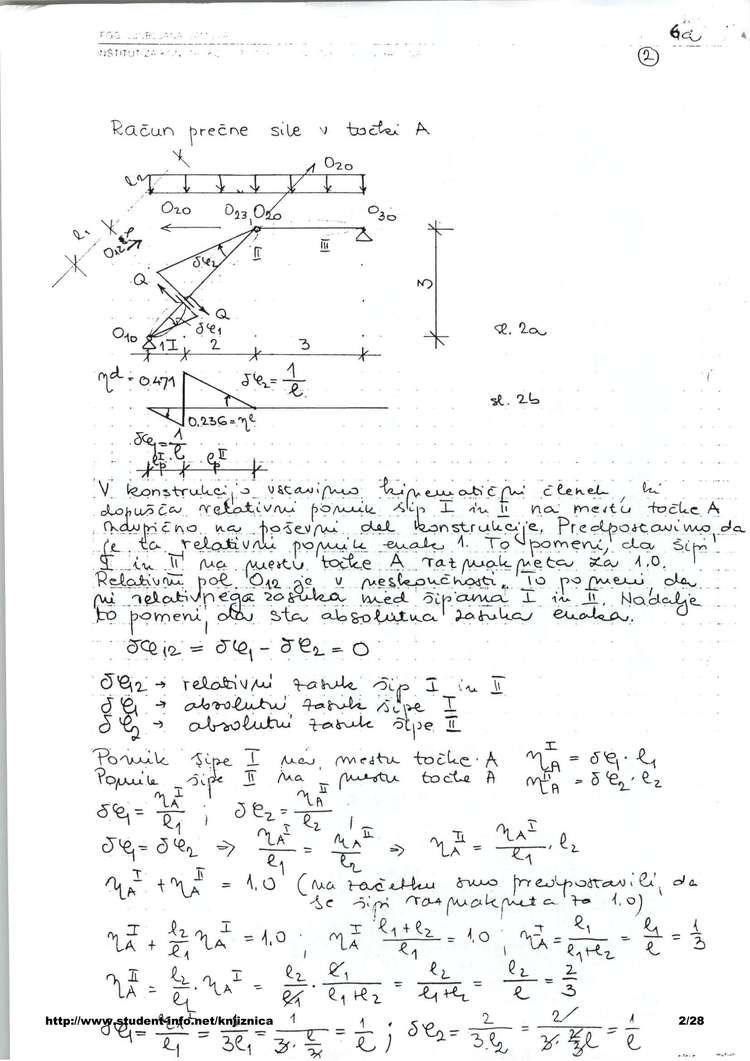 6a
2
Račun prečne sile v točki A
O20
l2
O20 O23, O20 O30
l1
δφ2 II III
Q
Q
O10 δφ1
1 I 2 3
3
sl. 2a
ηd = 0.471 δφ2 = 1/l
0.236 = ηl
sl. 2b
δφ1 = 1/l
lpI lpII
V konstrukcijo vstavimo kinematični členek, ki
dopušča relativni pomik šip I in II na mestu točke A
navpično na poševni del konstrukcije. Predpostavimo, da
je ta relativni pomik enak 1. To pomeni, da šipi
I in II na mestu točke A razmakneta za 1.0.
Relativni pol O12 je v neskončnosti. To pomeni, da
ni relativnega zasuka med šipama I in II. Nadalje
to pomeni, da sta absolutna zasuka enaka.
δφ12 = δφ1 - δφ2 = 0
δφ12 → relativni zasuk šip I in II
δφ1 → absolutni zasuk šipe I
δφ2 → absolutni zasuk šipe II
Pomik šipe I na mestu točke A ηAI = δφ1 · l1
Pomik šipe II na mestu točke A ηAII = δφ2 · l2
δφ1 = ηAI/l1 ; δφ2 = ηAII/l2 ;
δφ1 = δφ2 ⇒ ηAI/l1 = ηAII/l2 ⇒ ηAII = ηAI/l1 · l2
ηAI + ηAII = 1.0 (na začetku smo predpostavili, da
se šipi razmakneta za 1.0)
ηAI + l2/l1 ηAI = 1.0 ; ηAI (l1+l2)/l1 = 1.0 ; ηAI = l1/(l1+l2) = l1/l = 1/3
ηAII = l2/l1 · ηAI = l2/l1 · l1/(l1+l2) = l2/(l1+l2) = l2/l = 2/3
http://www.student-info.net/knjiznica 2/28
l1 = 1/3l1 = 1/(3·l/3) = 1/l ; δφ2 = 2/(3·l2) = 2/(3·2/3l) = 1/l